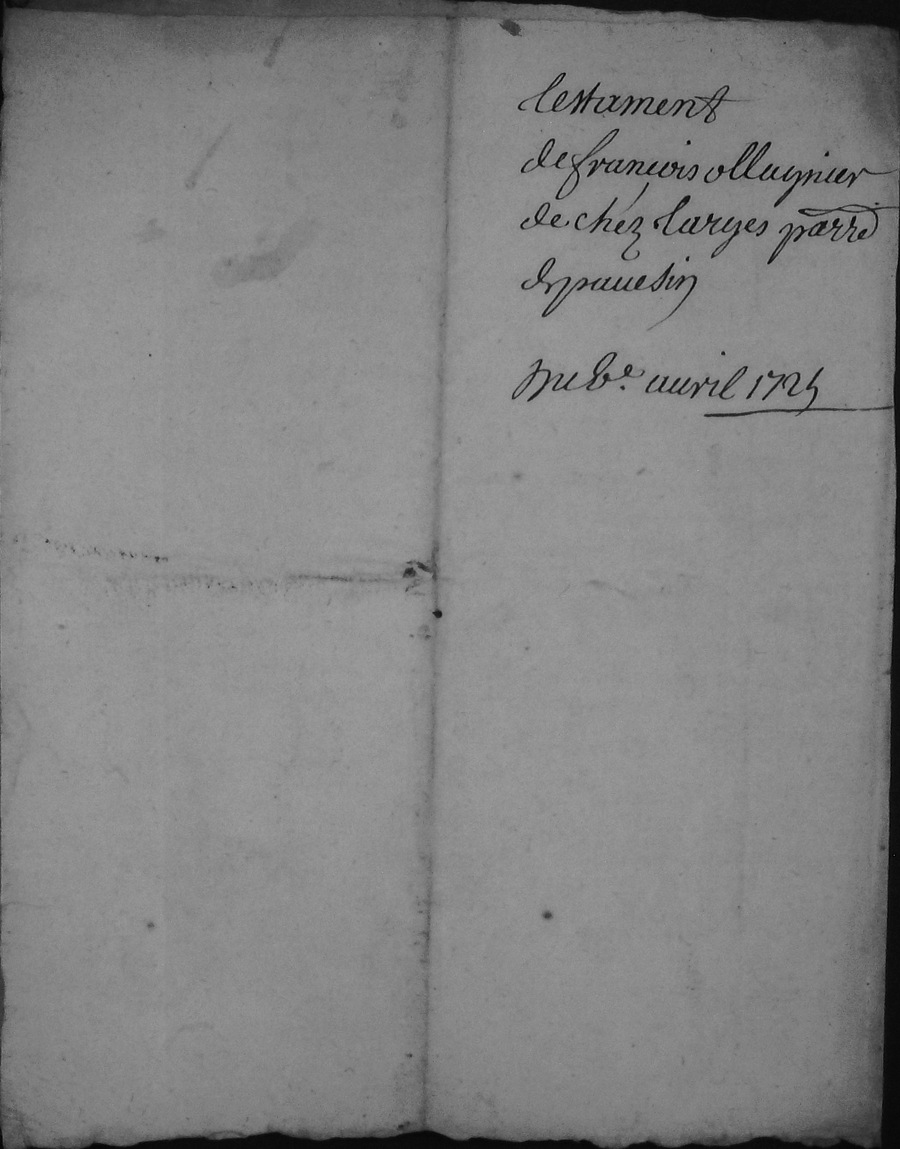 testament
de francois ollagnier
de chez larges parre
de pauesin
Du 6e. auril 1725